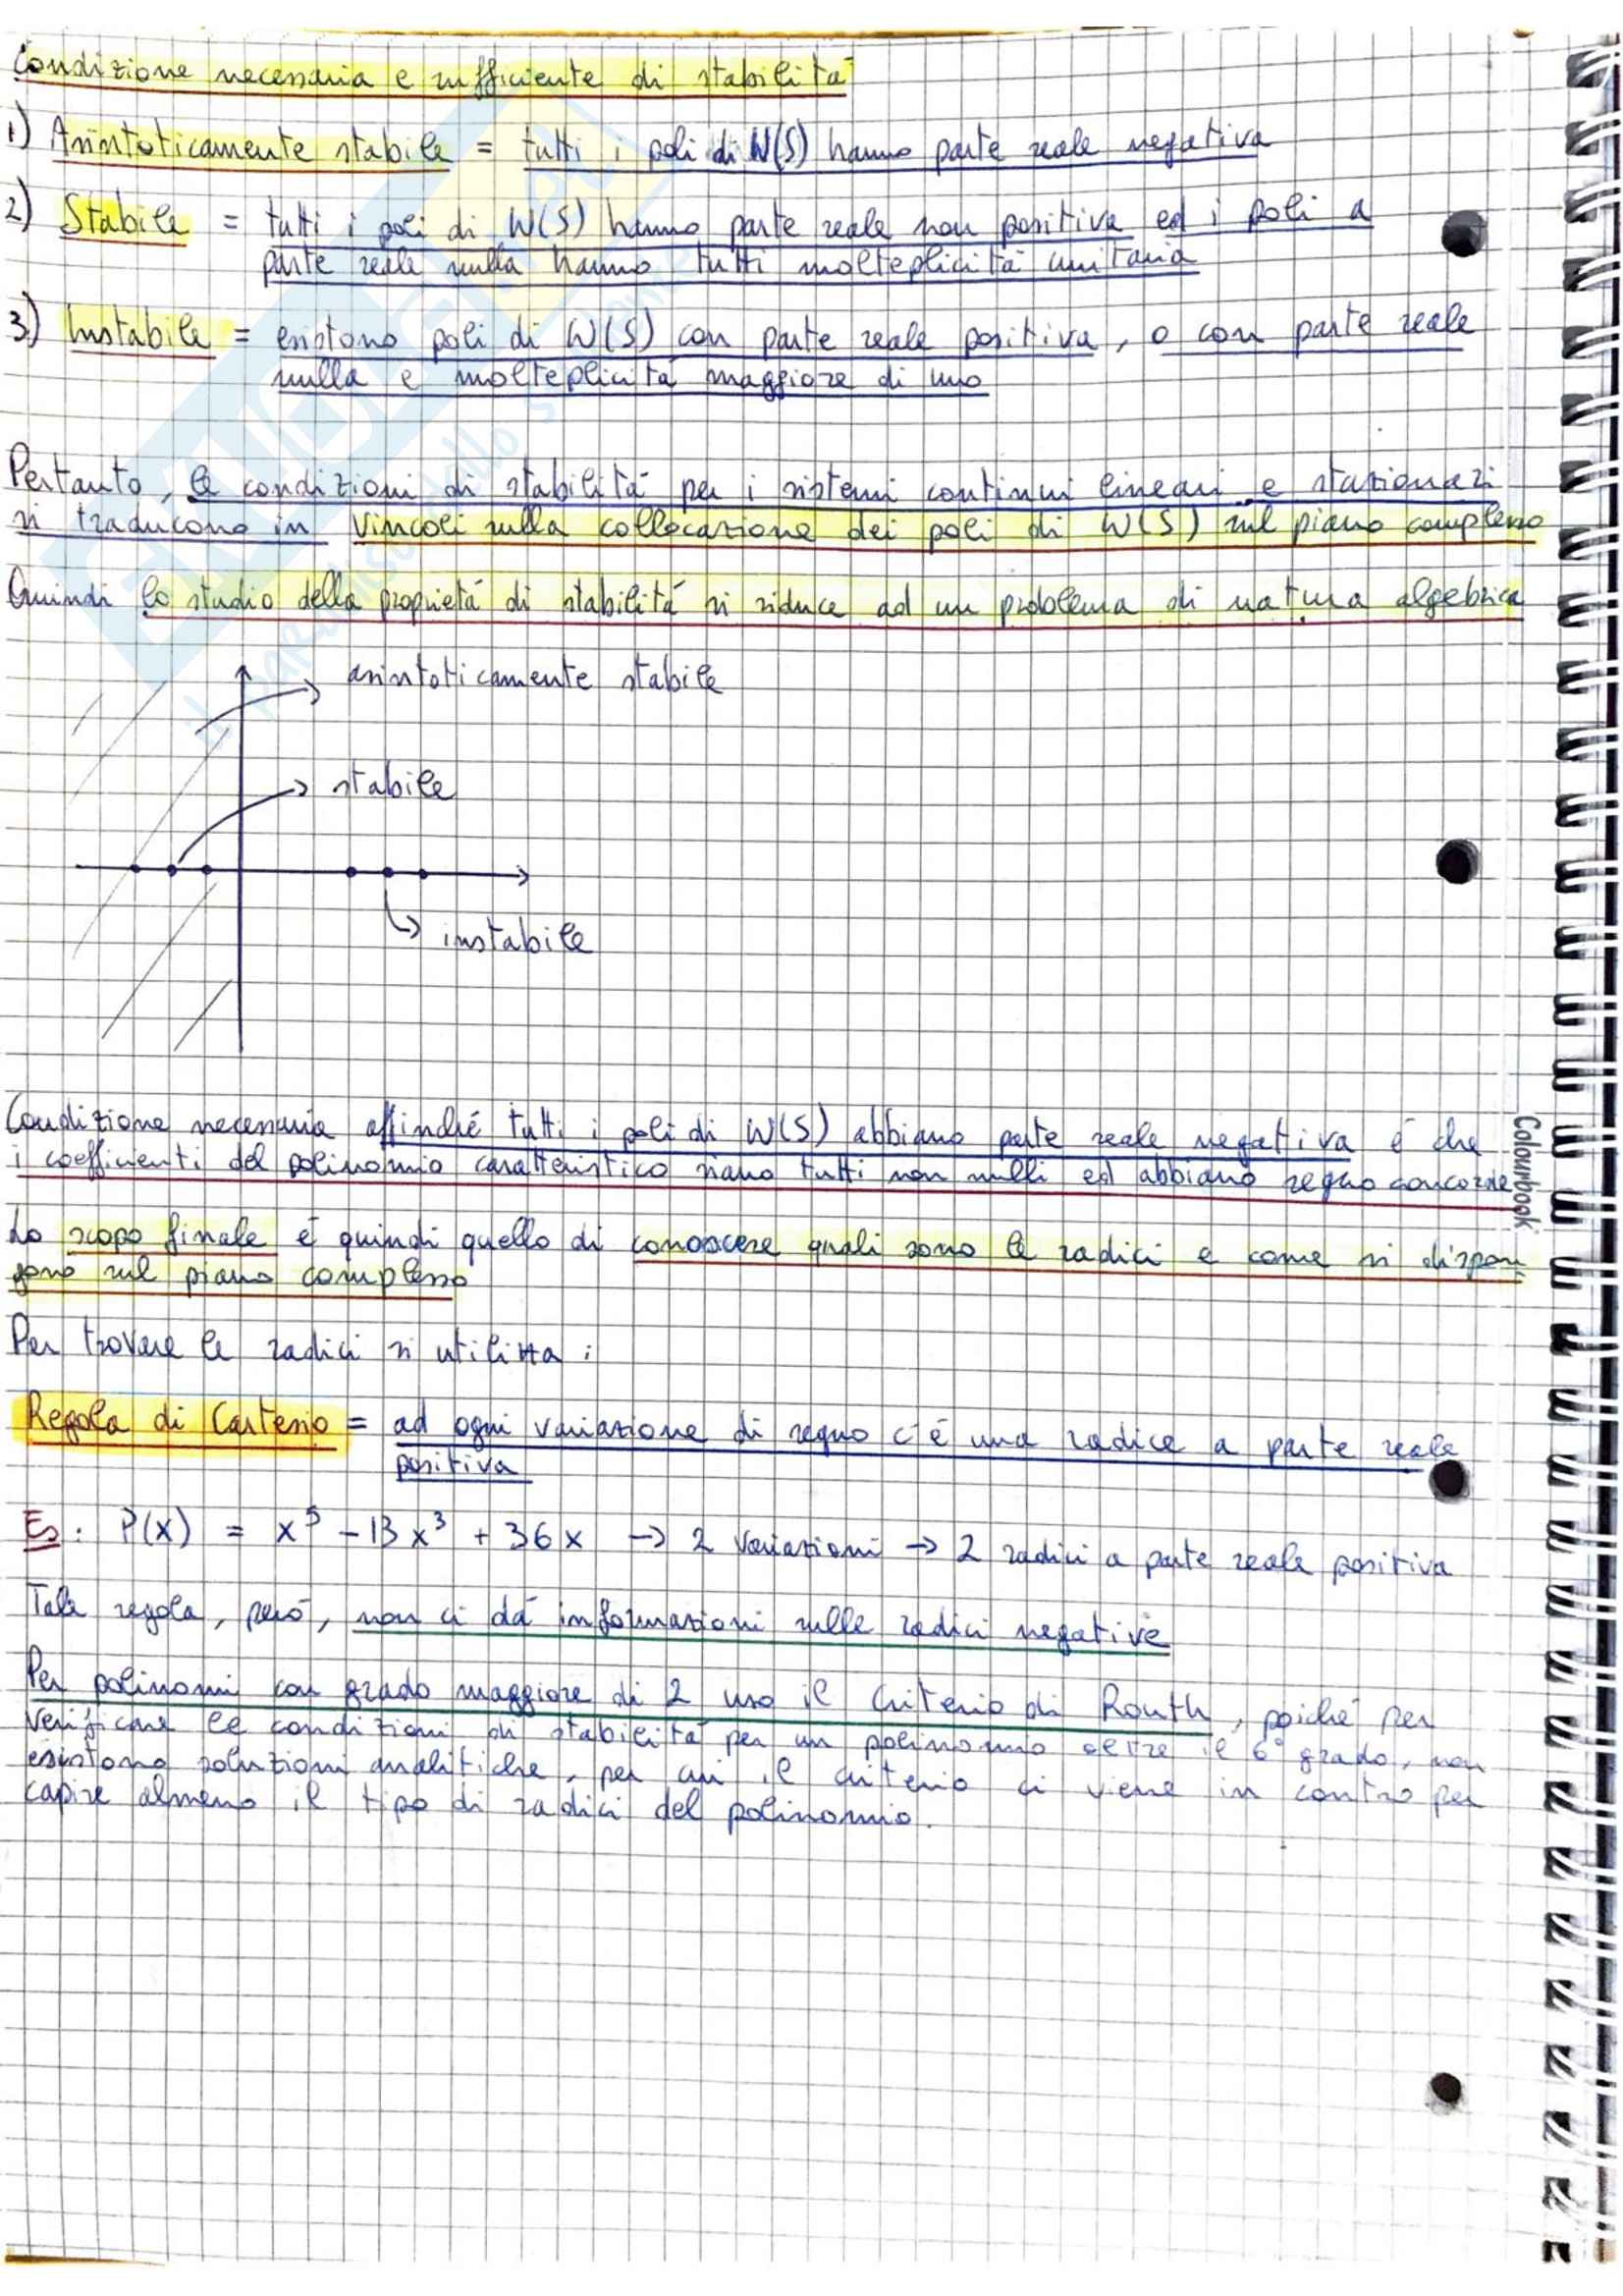 Condizione necessaria e sufficiente di stabilità
1) Asintoticamente stabile = tutti i poli di W(S) hanno parte reale negativa
2) Stabile = tutti i poli di W(S) hanno parte reale non positiva ed i poli a
parte reale nulla hanno tutti molteplicità unitaria
3) Instabile = esistono poli di W(S) con parte reale positiva, o con parte reale
nulla e molteplicità maggiore di uno
Pertanto, le condizioni di stabilità per i sistemi continui lineari e stazionari
si traducono in vincoli sulla collocazione dei poli di W(S) sul piano complesso
Quindi lo studio della proprietà di stabilità si riduce ad un problema di natura algebrica
asintoticamente stabile
stabile
instabile
Condizione necessaria affinché tutti i poli di W(S) abbiano parte reale negativa é che
i coefficienti del polinomio caratteristico siano tutti non nulli ed abbiano segno concorde
Lo scopo finale é quindi quello di conoscere quali sono le radici e come si dispon
gono sul piano complesso
Per trovare le radici si utilizza:
Regola di Cartesio = ad ogni variazione di segno c'é una radice a parte reale
positiva
Es: P(x) = x⁵ - 13x³ + 36x → 2 variazioni → 2 radici a parte reale positiva
Tale regola, però, non ci dá informazioni sulle radici negative
Per polinomi con grado maggiore di 2 uso il Criterio di Routh, poiché per
verificare le condizioni di stabilità per un polinomio oltre il 6° grado, non
esistono soluzioni analitiche, per cui il criterio ci viene in contro per
capire almeno il tipo di radici del polinomio.
Colourbook